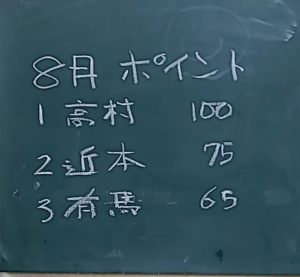 8月 ポイント
1 高村 100
2 近本 75
3 有馬 65